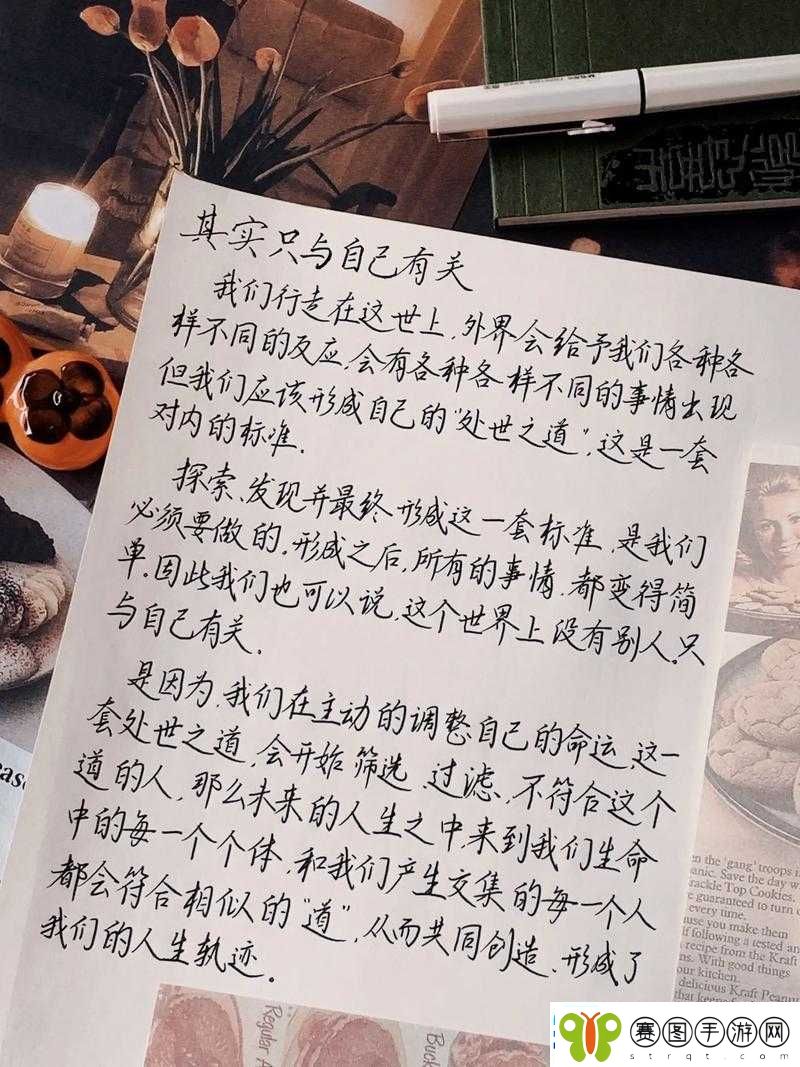 其实只与自己有关
我们行走在这世上,外界会给予我们各种各
样不同的反应,会有各种各样不同的事情出现
但我们应该形成自己的“处世之道”,这是一套
对内的标准.
探索、发现并最终形成这一套标准,是我们
必须要做的.形成之后,所有的事情.都变得简
单.因此我们也可以说,这个世界上没有别人.只
与自己有关.
是因为,我们在主动的调整自己的命运,这一
套处世之道,会开始筛选、过滤,不符合这个
道的人,那么未来的人生之中,来到我们生命
中的每一个个体,和我们产生交集的每一个人
都会符合相似的“道”,从而共同创造、形成了
我们的人生轨迹.
en the 'gang' troops i
anic. Save the day w
rackle Top Cookies.
e guaranteed to turn o
every time.
use you make them
following a tested an
recipe from the Kraft
s. With good things
our kitchen.
delicious Kraft Peanu
that keep
Regular
Buck
赛图手游网
strqt.com